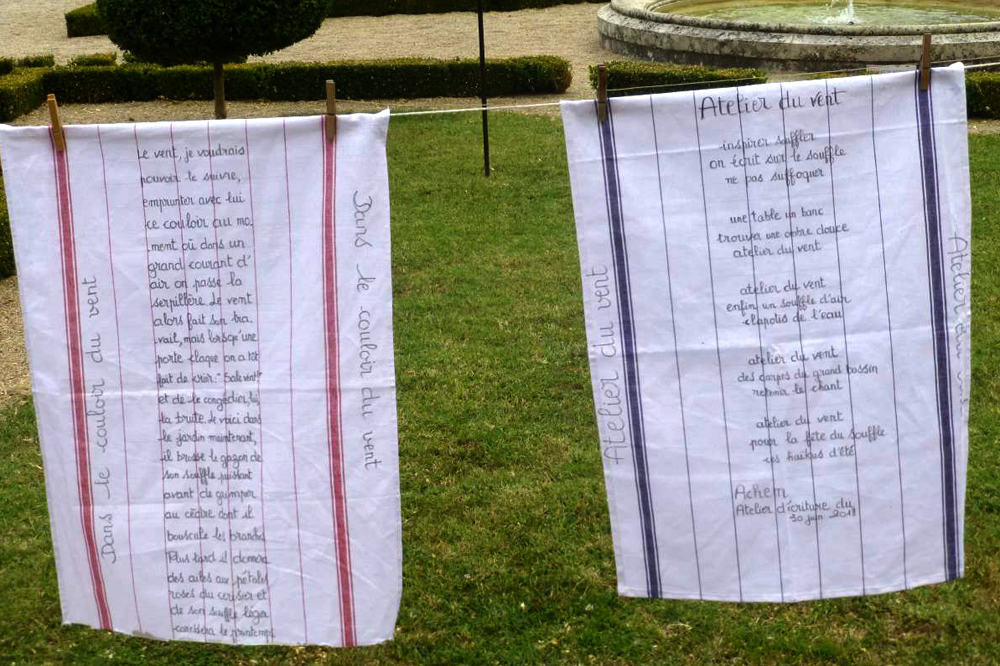 Le vent, je voudrais
pouvoir le suivre,
emprunter avec lui
ce couloir au mo.
ment où dans un
grand courant d'
air on passe la
serpillère. Le vent
alors fait son tra.
vail, mais lorsqu'une
porte claque on a tôt
fait de crier: "Sale vent"
et de le congédier,
la brute. Le voici dans
le jardin maintenant,
il brosse le gazon de
son souffle puissant
avant de grimper
au cèdre dont il
bouscule les branches
Plus tard il donnera
des ailes aux pétales
roses du cerisier et
de son souffle léger
caressera le printemps
Dans le couloir du vent
Dans le couloir du vent
Atelier du vent
inspirer souffler
on écrit sur le souffle
ne pas suffoquer
une table un banc
trouver une ombre douce
atelier du vent
atelier du vent
enfin un souffle d'air
clapotis de l'eau
atelier du vent
des carpes du grand bassin
retenir le chant
atelier du vent
pour la fête du souffle
ces haïkus d'été
Achem
Atelier d'écriture du
30 juin 2011
Atelier du vent
Atelier du vent